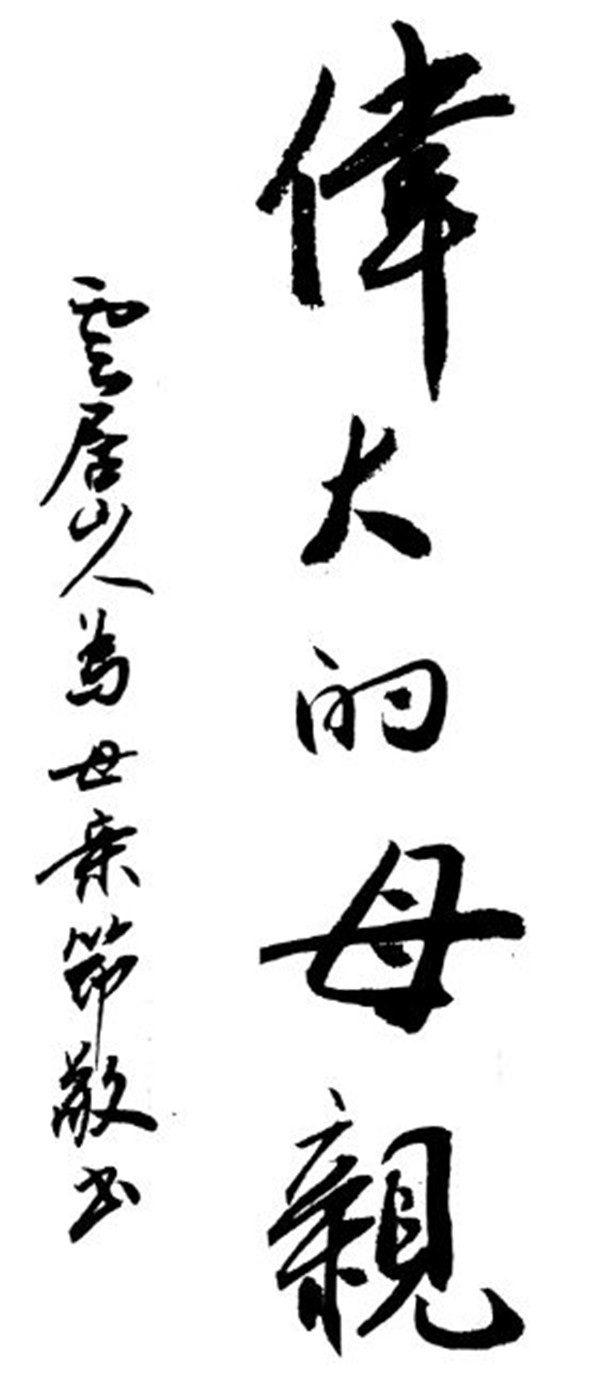 偉大的母親
雲居山人為母亲節敬书